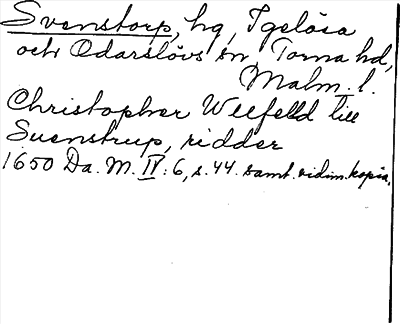 Svenstorp, hg, Igelösa
och Odarslövs sn, Torna hd,
Malm. l.
Christopher Wlfeld till
Suenstrup, ridder
1650 Da. M. IV: 6, s. 44. samt. vidim. kopia.